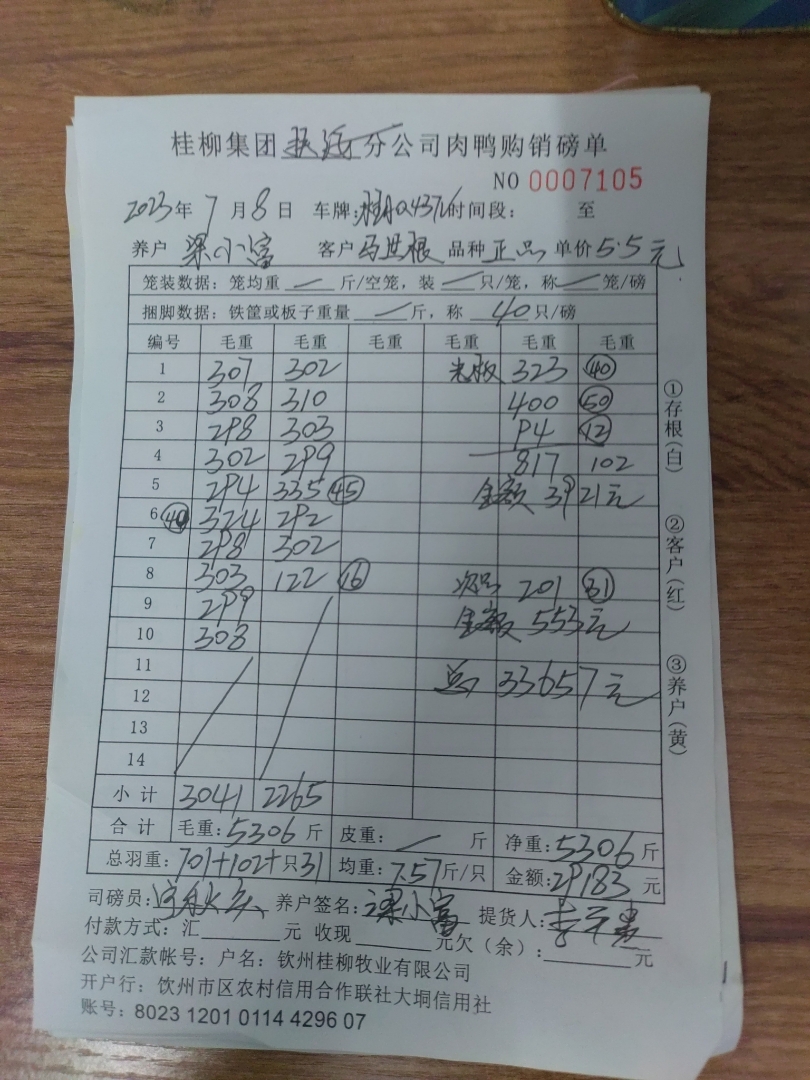 桂柳集团 分公司肉鸭购销磅单
NO 0007105
2023年 7月 8日 车牌: 时间段: 至
养户 梁小富 客户 马世根 品种 正品 单价 5.5元
笼装数据: 笼均重 — 斤/空笼, 装 — 只/笼, 称 — 笼/磅
捆脚数据: 铁筐或板子重量 — 斤, 称 40 只/磅
编号 毛重 毛重 毛重 毛重 毛重 毛重
1 307 302 光板 323 40
2 308 310 400 50
3 298 303 94 12
4 302 299 817 102
5 294 335 45 金额 3921元
6 40 324 292
7 298 302
8 303 122 16 次品 201 31
9 299 金额 553元
10 308
11 总 33657元
12
13
14
小计 3041 2265
合计 毛重: 5306 斤 皮重: — 斤 净重: 5306 斤
总羽重: 701+102+只31 均重: 7.57斤/只 金额: 29183 元
司磅员: 养户签名: 梁小富 提货人:
付款方式: 汇 元 收现 元欠(余): 元
公司汇款帐号: 户名: 钦州桂柳牧业有限公司
开户行: 钦州市区农村信用合作联社大垌信用社
账号: 8023 1201 0114 4296 07
①存根(白)
②客户(红)
③养户(黄)